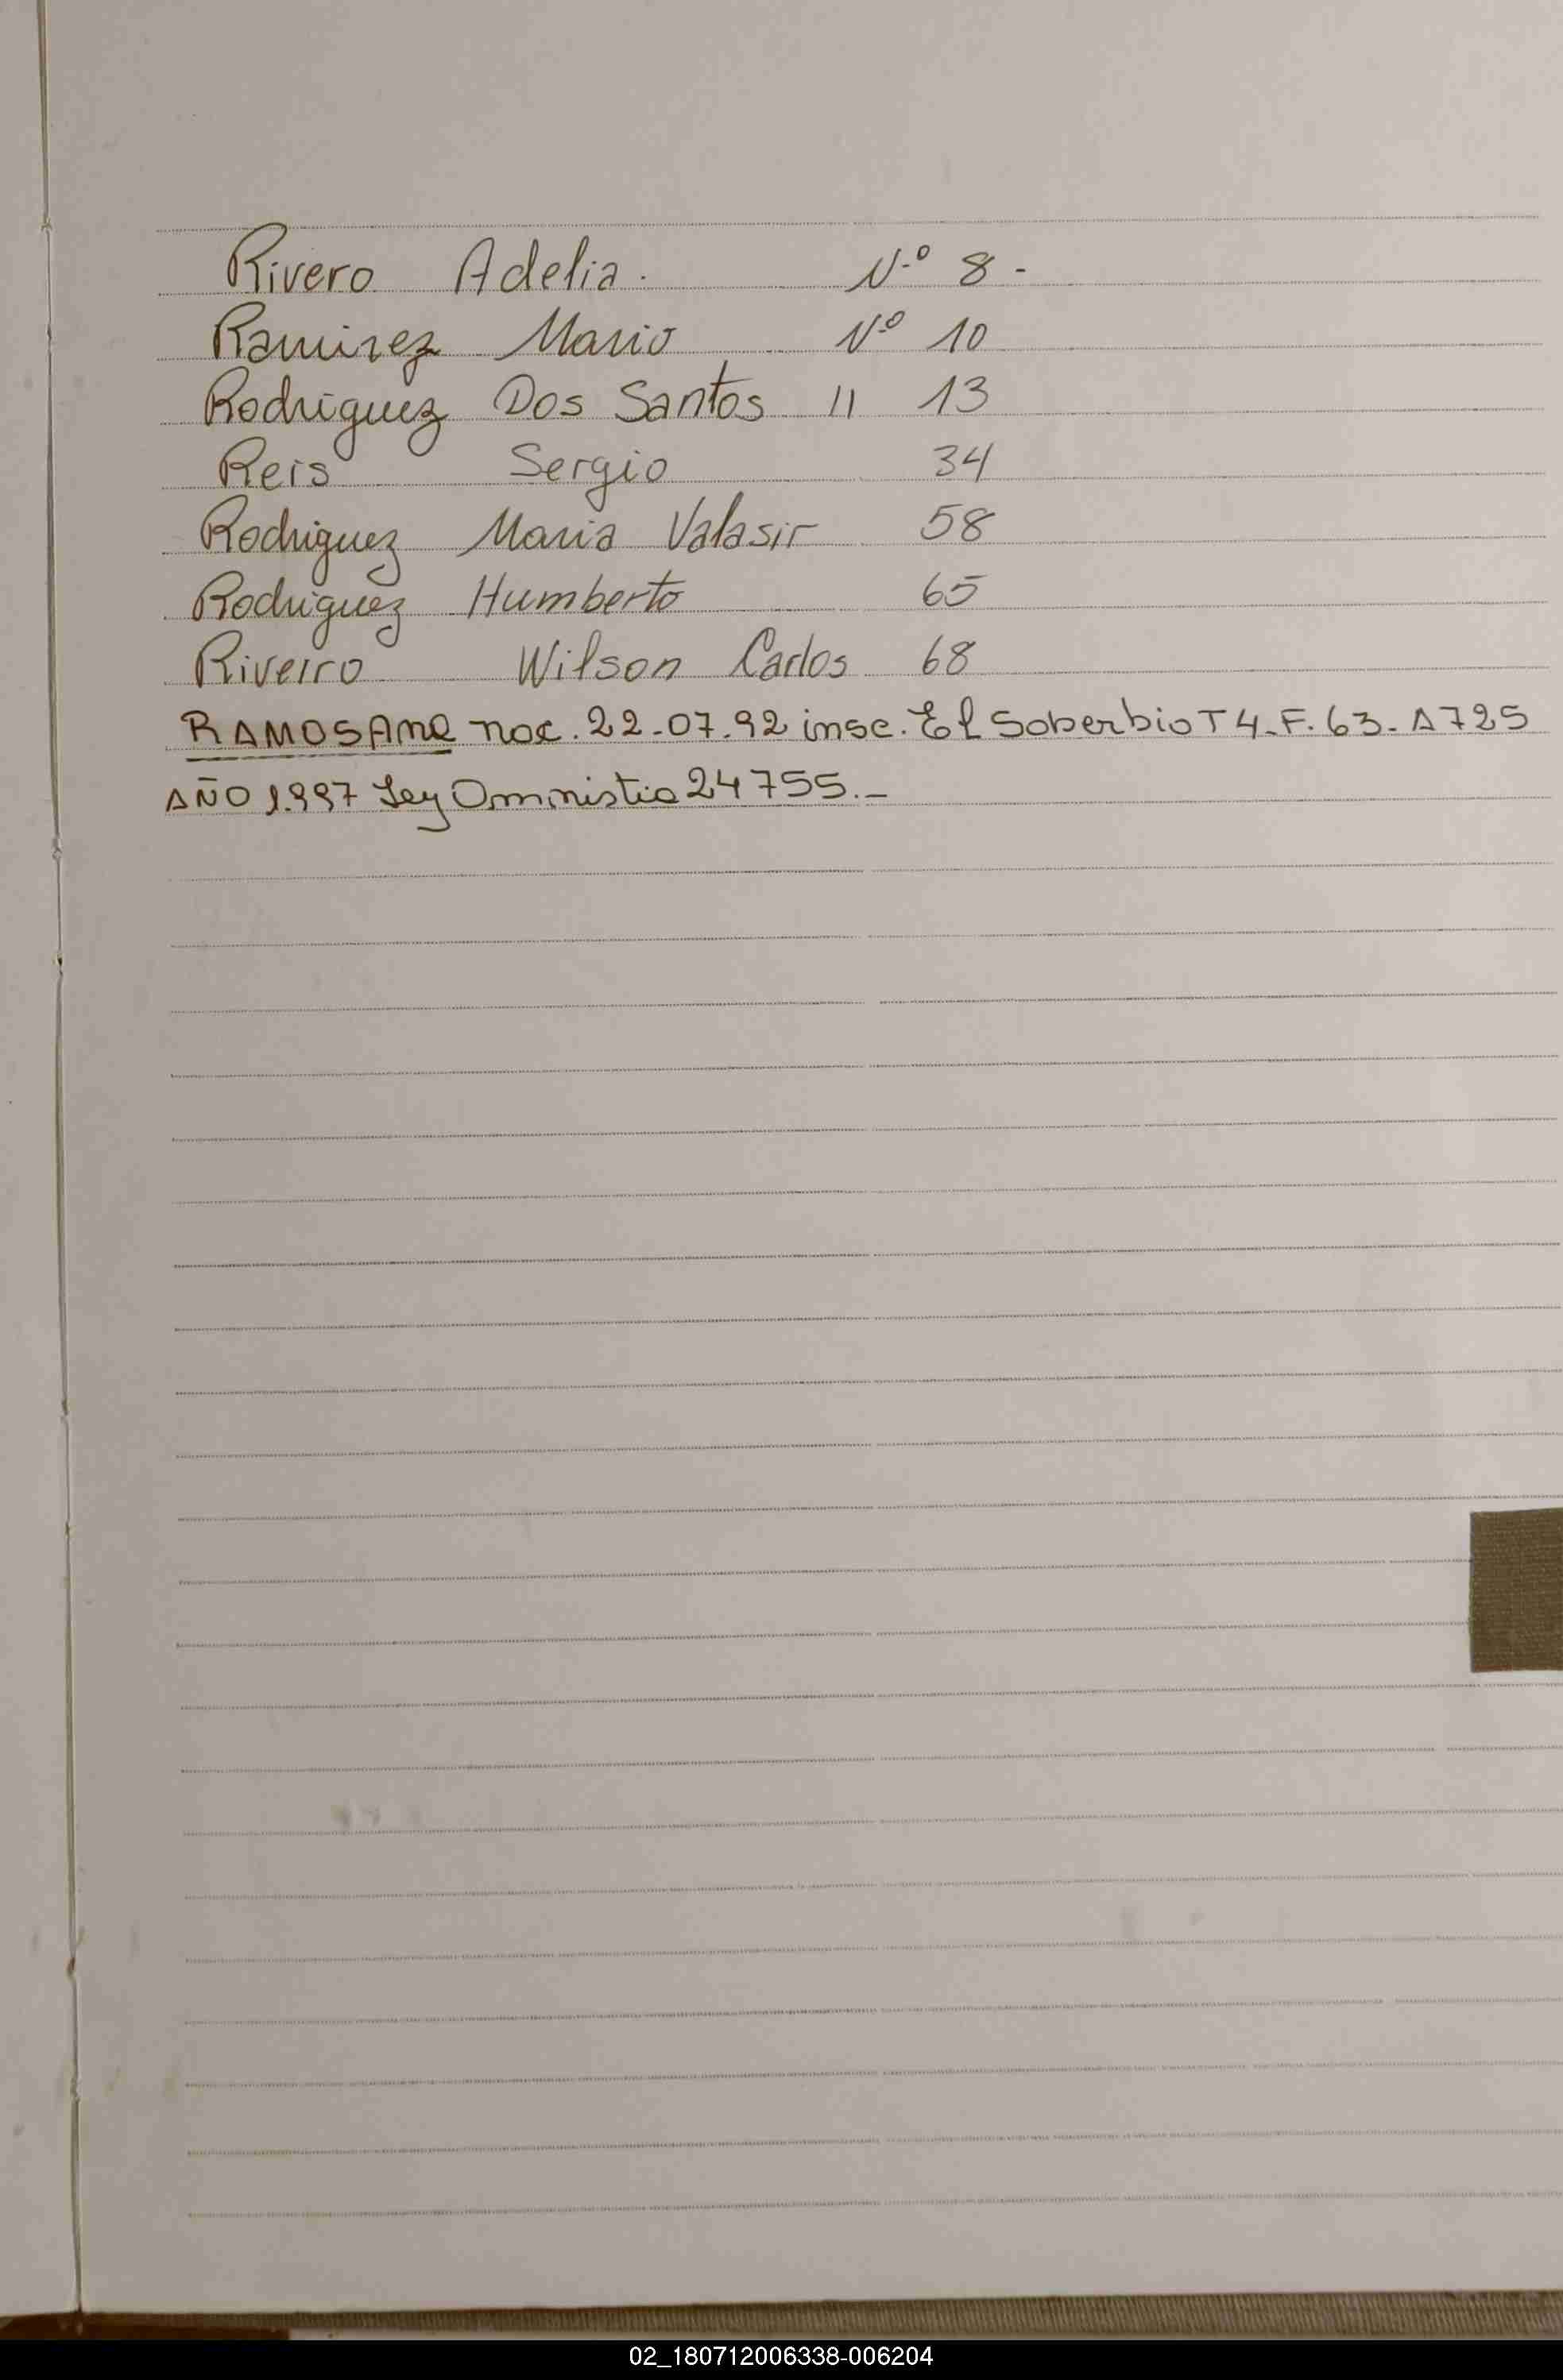 Rivero Adelia. N.º 8 -
Ramirez Mario Nº 10
Rodriguez Dos Santos 11 13
Reis Sergio 34
Rodriguez Maria Valasir 58
Rodriguez Humberto 65
Riveiro Wilson Carlos 68
RAMOS Ana nac. 22-07-92 insc. El Soberbio T 4-F. 63- A 725
AÑO 1.997 Ley Amnistia 24755.-
02_180712006338-006204